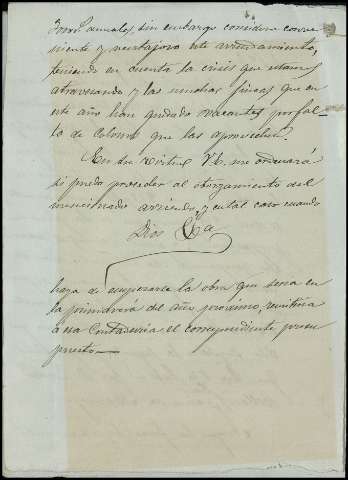 anuales, sin embargo considero conve
niente y ventajoso este arrendamiento,
teniendo en cuenta la crisis que estamos
atravesando y las muchas fincas que en
este año han quedado vacantes por fal-
ta de colonos que las aprovechen.
En su virtud V.E. me ordenará
si puedo proceder al otorgamiento del
mencionado arriendo, y en tal caso cuando
Dios &a
haya de empezarse la obra que seria en
la primavera del año proximo, remitiria
á esa Contaduria el correspondiente presu
puesto.